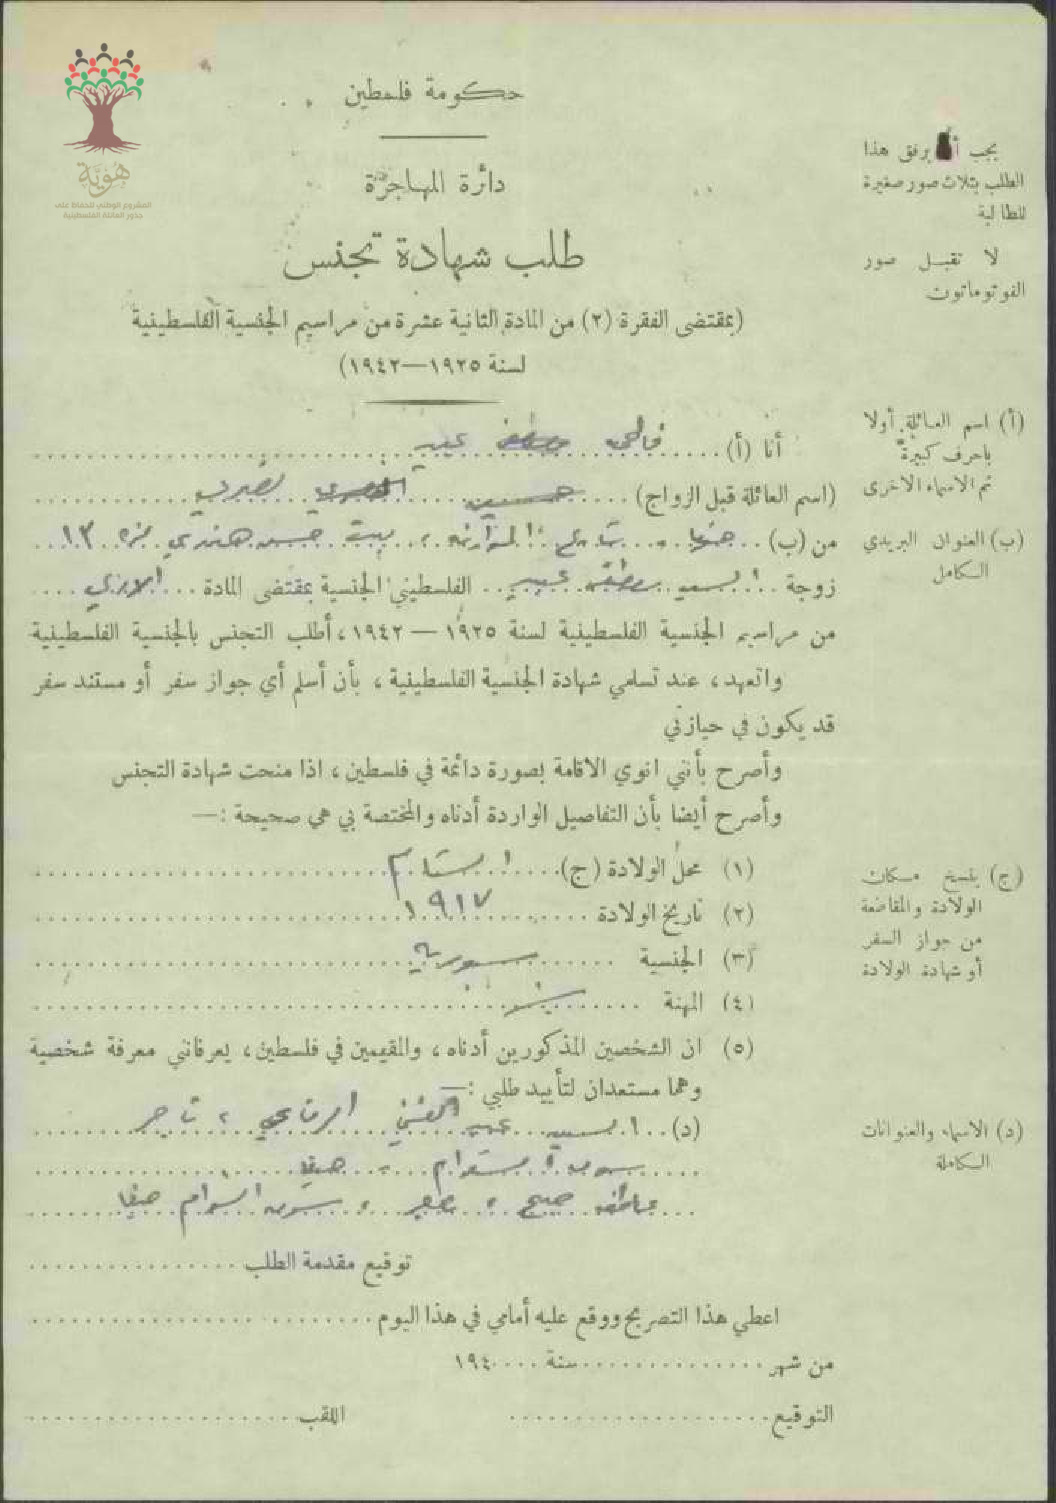 هُوِيَّة
المشروع الوطني للحفاظ على
جذور العائلة الفلسطينية
حكومة فلسطين
دائرة المهاجرة
طلب شهادة تجنس
(بمقتضى الفقرة (٢) من المادة الثانية عشرة من مراسيم الجنسية الفلسطينية
لسنة ١٩٢٥—١٩٤٢)
يجب أن يرفق هذا
الطلب بثلاث صور صغيرة
للطالبة
لا تقبل صور
الفوتوماتون
أنا (أ) عبيد
(اسم العائلة قبل الزواج) حسين المصري
من (ب) حيفا شارع بيت ١٣
زوجة السيد عبيد الفلسطيني الجنسية بمقتضى المادة
من مراسيم الجنسية الفلسطينية لسنة ١٩٢٥ — ١٩٤٢، أطلب التجنس بالجنسية الفلسطينية
واتعهد، عند تسلمي شهادة الجنسية الفلسطينية، بأن أسلم أي جواز سفر أو مستند سفر
قد يكون في حيازتي
وأصرح بأنني انوي الاقامة بصورة دائمة في فلسطين، اذا منحت شهادة التجنس
وأصرح أيضا بأن التفاصيل الواردة أدناه والمختصة بي هي صحيحة :—
(١) محل الولادة (ج) الشام
(٢) تاريخ الولادة ١٩١٧
(٣) الجنسية سورية
(٤) المهنة
(٥) ان الشخصين المذكورين أدناه، والمقيمين في فلسطين، يعرفانني معرفة شخصية
وهما مستعدان لتأييد طلبي :—
(د) السيد عبد الغني الرفاعي، تاجر
حيفا
حيفا
توقيع مقدمة الطلب
اعطي هذا التصريح ووقع عليه أمامي في هذا اليوم
من شهر سنة ١٩٤
التوقيع اللقب
(أ) اسم العائلة أولا
باحرف كبيرة
ثم الاسماء الاخرى
(ب) العنوان البريدي
الكامل
(ج) ينسخ مكان
الولادة والمقاطعة
من جواز السفر
أو شهادة الولادة
(د) الاسماء والعنوانات
الكاملة